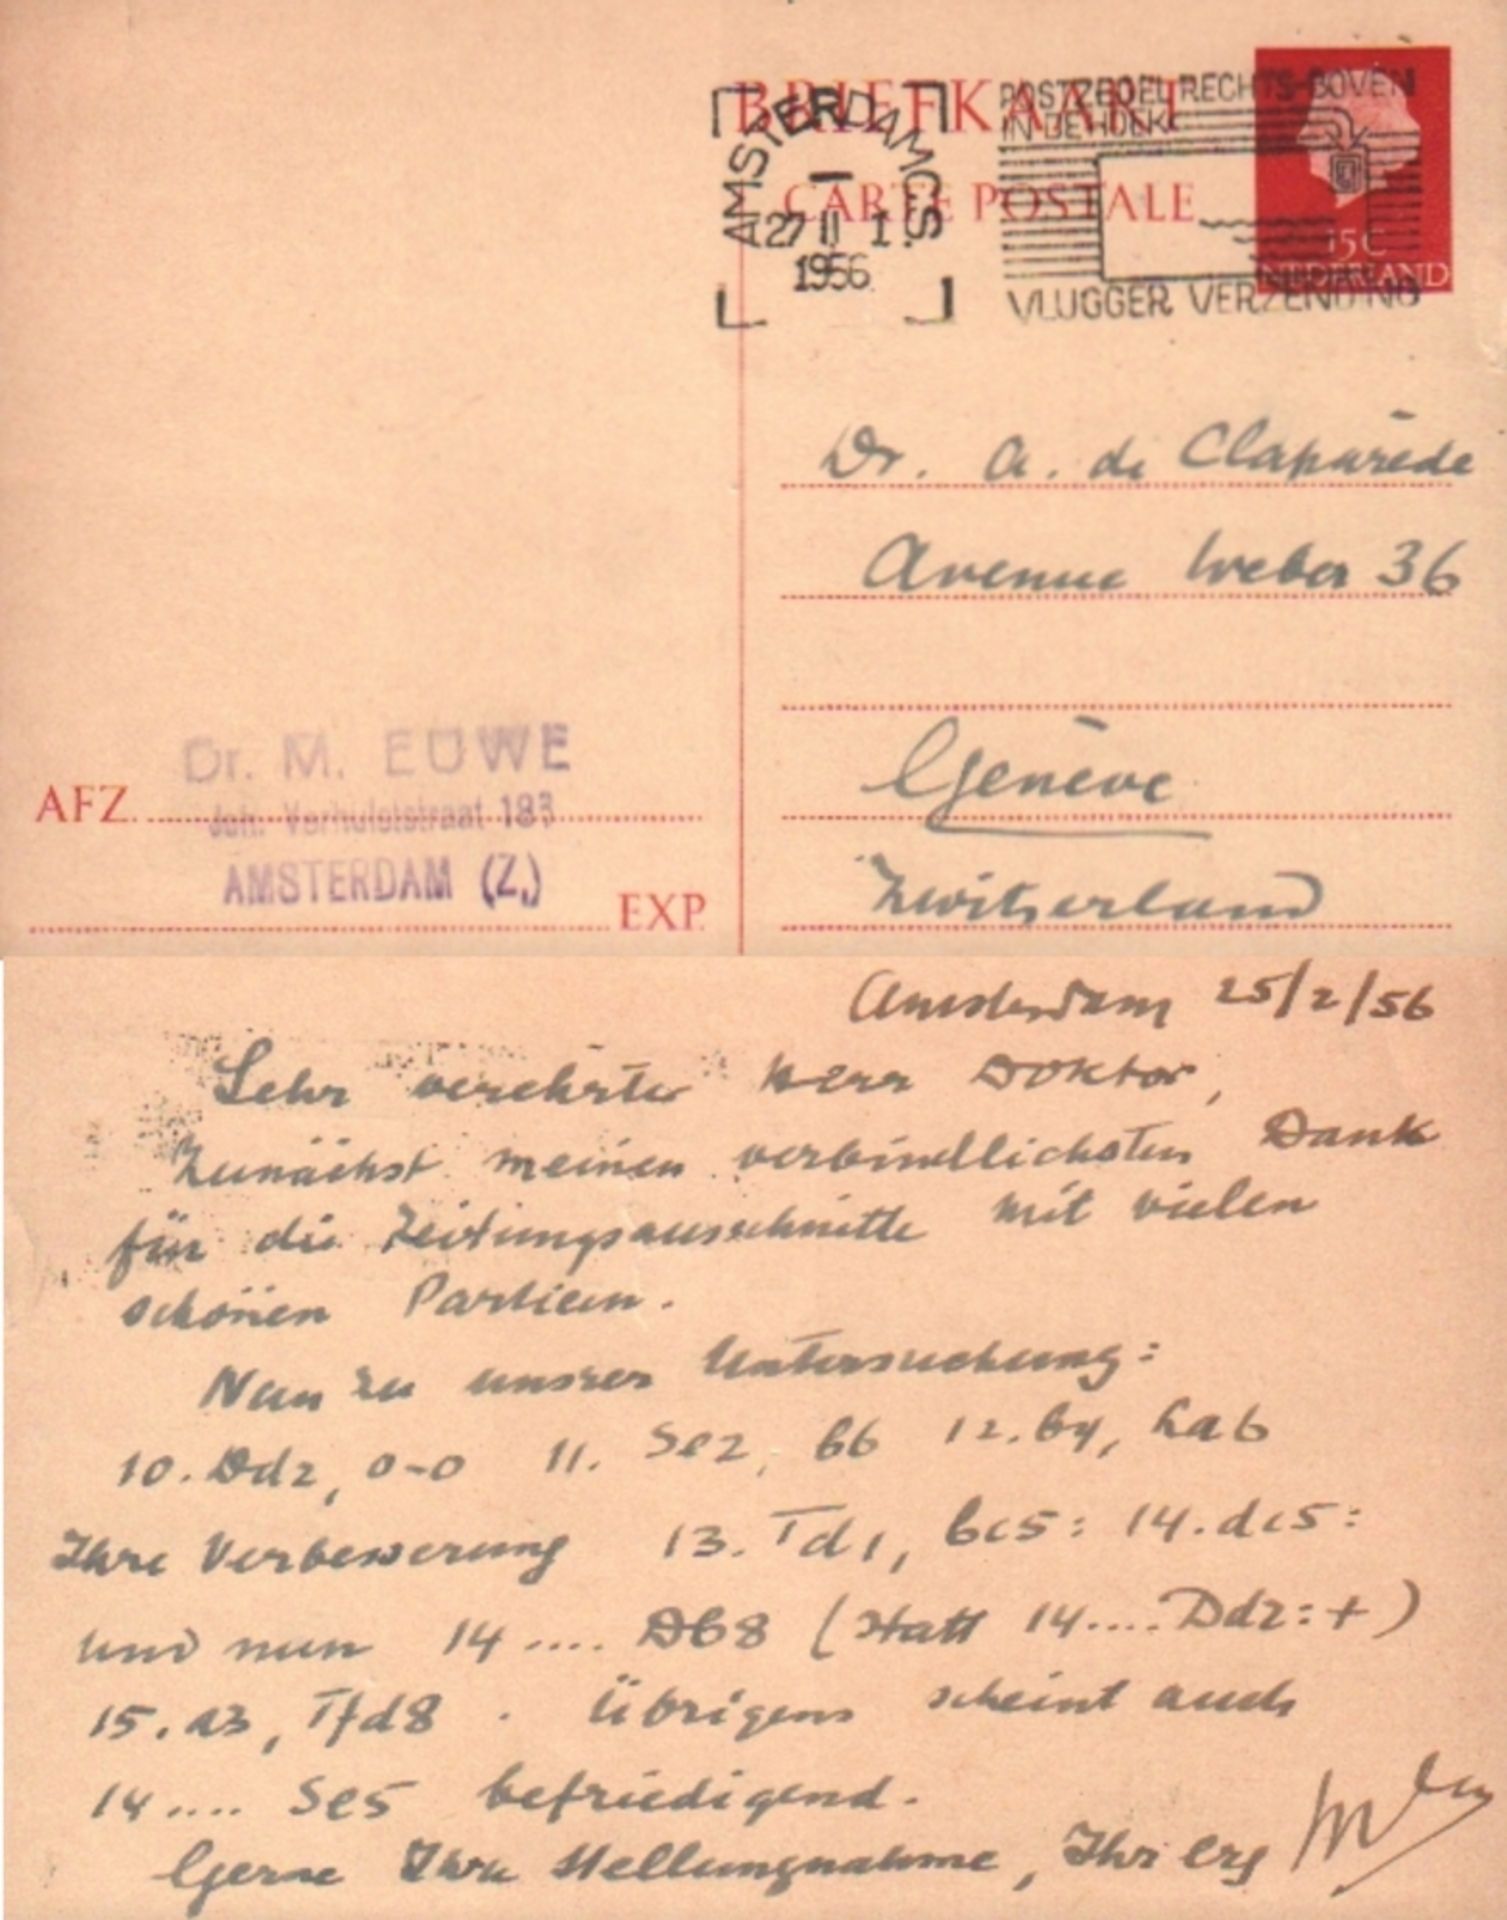 BRIEFKAART
CARTE POSTALE
AMSTERDAM CS
27 II 1
1956
POSTZEGEL RECHTS-BOVEN
IN DE HOEK
VLUGGER VERZENDING
15 C
NEDERLAND
Dr. A. de Claparède
Avenue Weber 36
Genève
Zwitserland
Dr. M. EUWE
AFZ.
Joh. Verhulststraat 183
AMSTERDAM (Z.)
EXP.
Amsterdam 25/2/56
Sehr verehrter Herr Doktor,
Zunächst meinen verbindlichsten Dank
für die Zeitungsausschnitte mit vielen
schönen Partien.
Nun zu unsrer Untersuchung:
10. Dd2, 0-0 11. Se2, b6 12. b4, La6
Ihre Verbesserung 13. Td1, bc5: 14. dc5:
und nun 14 .... Db8 (statt 14.... Dd2:+)
15. a3, Tfd8. Übrigens scheint auch
14 .... Se5 befriedigend.
Gerne Ihre Stellungnahme, Ihr erg